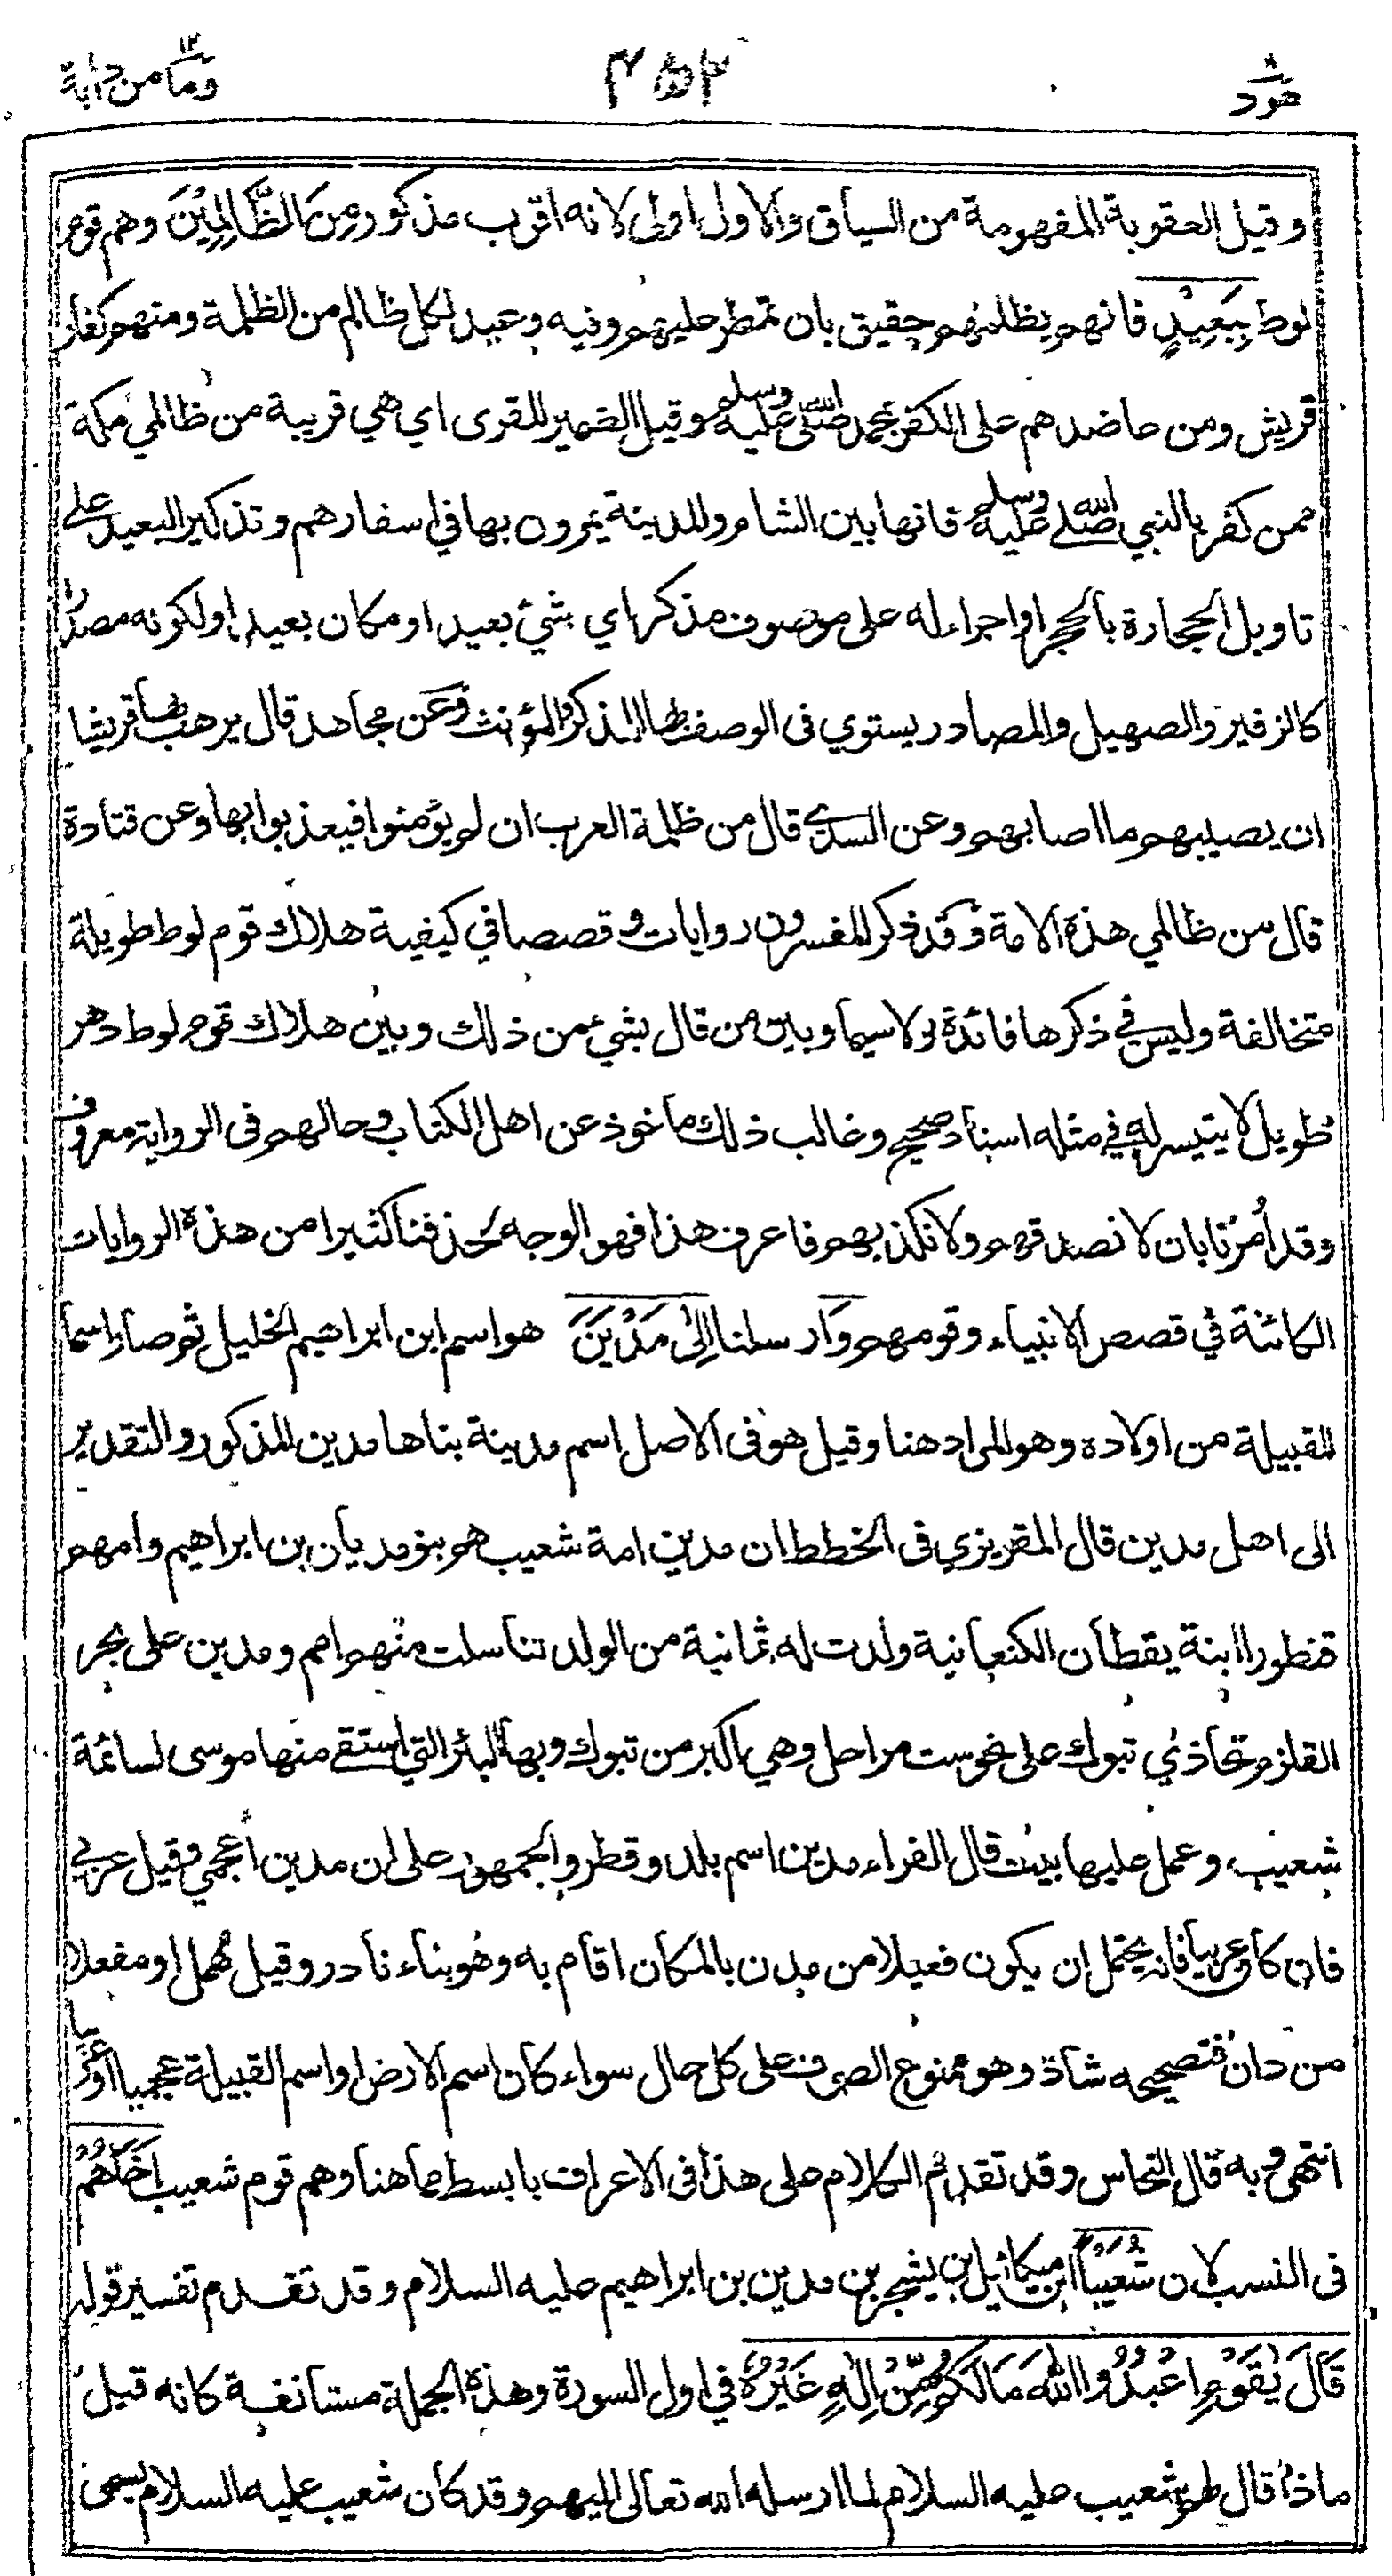 هود ٤٥٢ ١٢ وما من دابة
وقيل العقوبة المفهومة من السياق والاول اولى لانه اقرب مذكور مِنَ الظَّالِمِيْنَ وهم قوم
لوط بِبَعِيْدٍ فانهم بظلمهم حقيق بان تمطر عليهم وفيه وعيد لكل ظالم من الظلمة ومنهم كفار
قريش ومن عاضدهم على الكفر بمحمد صلى الله عليه وسلم وقيل الضمير للقرى اي هي قريبة من ظالمي مكة
ممن كفر بالنبي صلى الله عليه وسلم فانها بين الشام والمدينة يمرون بها في اسفارهم وتذكير البعيد على
تاويل الحجارة بالحجر او اجراء له على موصوف مذكر اي شيء بعيد او مكان بعيد او لكونه مصدرا
كالزفير والصهيل والمصادر يستوي فى الوصف بها المذكر والمؤنث وعن مجاهد قال يرهب بها قريشا
ان يصيبهم ما اصابهم وعن السدي قال من ظلمة العرب ان لم يؤمنوا فيعذبوا بها وعن قتادة
قال من ظالمي هذه الامة وقد ذكر المفسرون روايات وقصصا في كيفية هلاك قوم لوط طويلة
متخالفة وليس في ذكرها فائدة لا سيما وبين من قال بشيء من ذلك وبين هلاك قوم لوط دهر
طويل لا يتيسر له في مثله اسناد صحيح وغالب ذلك ماخوذ عن اهل الكتاب وحالهم فى الرواية معروف
وقد اُمرنا بان لا نصدقهم ولا نكذبهم فاعرف هذا فهو الوجه لحذفنا كثيرا من هذه الروايات
الكائنة في قصص الانبياء وقومهم وَارسلنا اِلٰى مَدْيَنَ هو اسم ابن ابراهيم الخليل ثم صار اسما
للقبيلة من اولاده وهو المراد هنا وقيل هو فى الاصل اسم مدينة بناها مدين المذكور والتقدير
الى اهل مدين قال المقريزي فى الخطط ان مدين امة شعيب هم بنو مديان بن ابراهيم وامهم
قنطورا ابنة يقطان الكنعانية ولدت له ثمانية من الولد تناسلت منهم امم ومدين على بحر
القلزم تحاذي تبوك على نحو ست مراحل وهي اكبر من تبوك وبها البئر التي استقى منها موسى لسائمة
شعيب وعمل عليها بيت قال الفراء مدين اسم بلد وقطر والجمهور على ان مدين اعجمي وقيل عربي
فان كان عربيا فانه يحتمل ان يكون فعيلا من مدن بالمكان اقام به وهو بناء نادر وقيل مهمل او مفعلا
من دان فتصحيحه شاذ وهو ممنوع الصرف على كل حال سواء كان اسم الارض او اسم القبيلة عجميا او عربيا
انتهى وبه قال النحاس وقد تقدم الكلام على هذا فى الاعراف بابسط مما هنا وهم قوم شعيب اَخَاهُمْ
فى النسب لان شُعَيْبًا ابن ميكائيل بن يشجر بن مدين بن ابراهيم عليه السلام وقد تقدم تفسير قوله
قَالَ يٰقَوْمِ اعْبُدُوا اللّٰهَ مَا لَكُمْ مِّنْ اِلٰهٍ غَيْرُهٗ في اول السورة وهذه الجملة مستانفة كانه قيل
ماذا قال لهم شعيب عليه السلام لما ارسله الله تعالى اليهم وقد كان شعيب عليه السلام يسمى